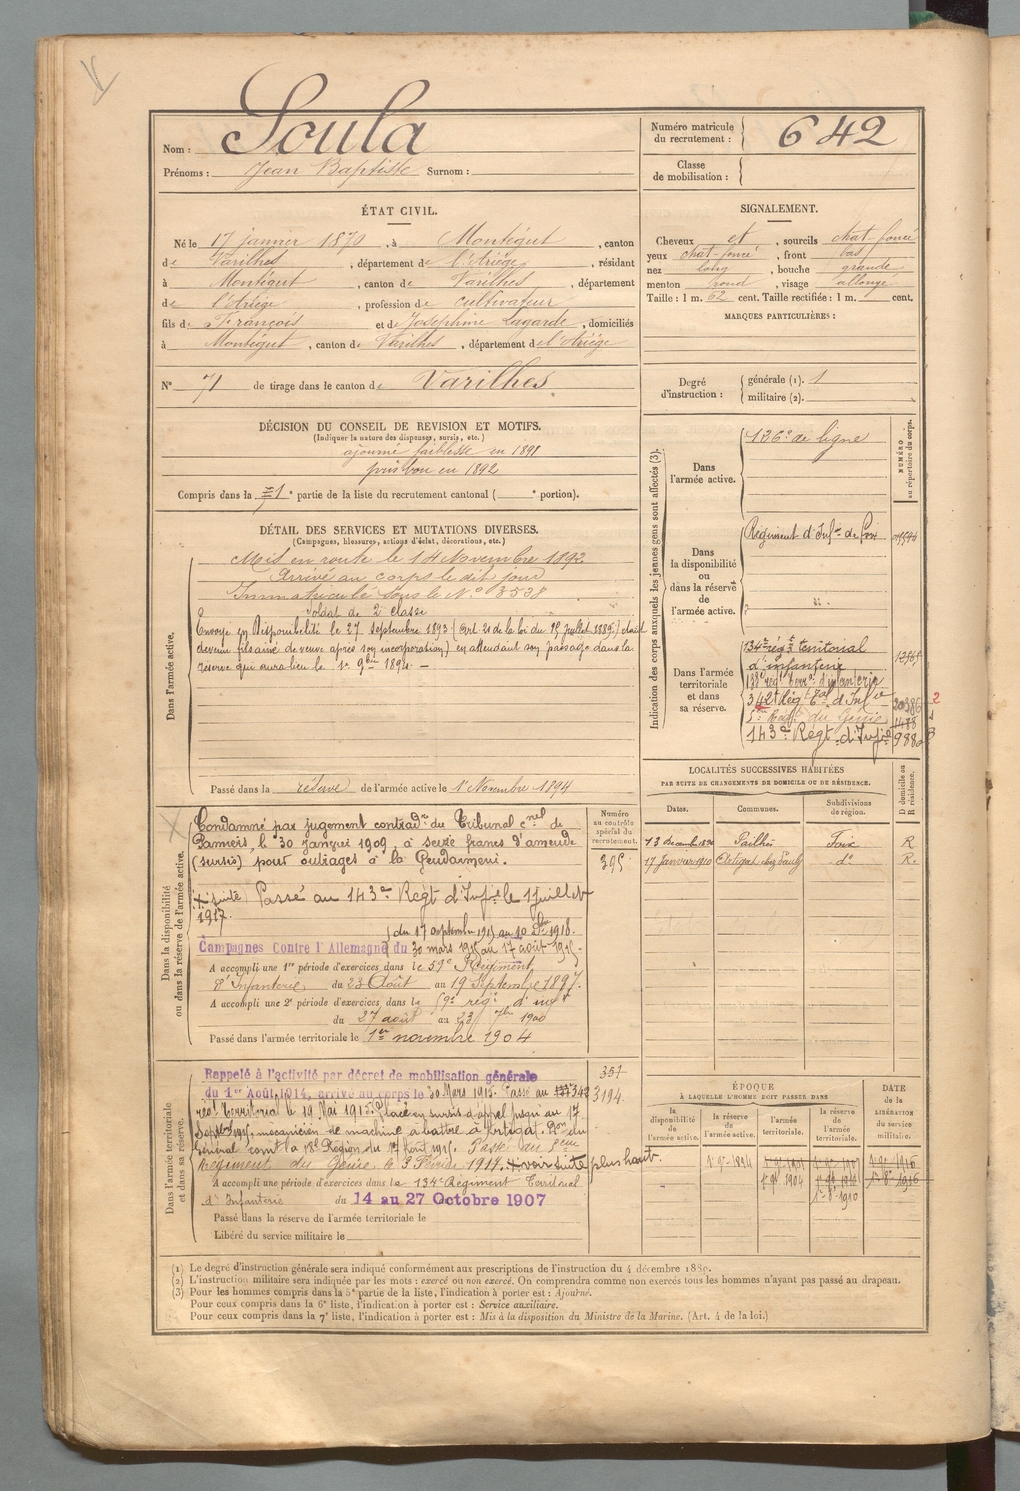 Nom : Soula
Prénoms : Jean Baptiste Surnom :
Numéro matricule du recrutement : 642
Classe de mobilisation :
ÉTAT CIVIL.
Né le 17 janvier 1870, à Montégut, canton
de Varilhes, département de l'Ariège, résidant
à Montégut, canton de Varilhes, département
de l'Ariège, profession de cultivateur
fils de François et de Joséphine Lagarde, domiciliés
à Montégut, canton de Varilhes, département de l'Ariège
N° 71 de tirage dans le canton de Varilhes
SIGNALEMENT.
Cheveux et, sourcils chat-foncé
yeux chat-foncé, front bas
nez long, bouche grande
menton rond, visage allongé
Taille : 1 m. 62 cent. Taille rectifiée : 1 m. cent.
MARQUES PARTICULIÈRES :
Degré d'instruction : générale (1). 1
militaire (2).
DÉCISION DU CONSEIL DE REVISION ET MOTIFS.
(Indiquer la nature des dispenses, sursis, etc.)
ajourné faiblesse en 1891
pris bon en 1892
Compris dans la 1e partie de la liste du recrutement cantonal ( e portion).
DÉTAIL DES SERVICES ET MUTATIONS DIVERSES.
(Campagnes, blessures, actions d'éclat, décorations, etc.)
Dans l'armée active.
Mis en route le 14 Novembre 1892
Arrivé au corps le dit jour
Immatriculé sous le N° 3538
Soldat de 2e classe
Envoyé en Disponibilité le 27 septembre 1893 (Art. 21 de la loi du 15 juillet 1889)
devenu fils aîné de veuve après son incorporation) en attendant son passage dans la
réserve qui aura lieu le 1er 9bre 1894. —
Passé dans la réserve de l'armée active le 1er Novembre 1894
Indication des corps auxquels les jeunes gens sont affectés (3).
NUMÉRO au répertoire du corps.
Dans l'armée active.
126e de ligne
Dans la disponibilité ou dans la réserve de l'armée active.
Régiment d'Infie de Foix
Dans l'armée territoriale et dans sa réserve.
134e régt territorial
d'infanterie
régt terral d'infanterie
342t Régt tal d'Infie 2
5me Régt du Génie 1488
143e Régt d'Infie
LOCALITÉS SUCCESSIVES HABITÉES
PAR SUITE DE CHANGEMENTS DE DOMICILE OU DE RÉSIDENCE.
Dates. Communes. Subdivisions de région. D domicile ou R résidence.
Pailhès Foix R
17 janvier 1910 Artigat do R.
Dans la disponibilité ou dans la réserve de l'armée active.
Numéro au contrôle spécial du recrutement.
395
Condamné par jugement contradre du Tribunal cnel de
Pamiers, le 30 janvier 1909, à seize francs d'amende
(sursis) pour outrages à la Gendarmerie.
+ suite Passé au 143e Régt d'Infie le 1 juillet
1917.
Campagnes Contre l'Allemagne du 30 mars 1915 au 17 août 1915.
A accompli une 1re période d'exercices dans le 59e Régiment
d'Infanterie du 23 Août au 19 Septembre 1897.
A accompli une 2e période d'exercices dans le 59e régt d'infie
du 27 août au 23 7bre 1900
Passé dans l'armée territoriale le 1er novembre 1904
Dans l'armée territoriale et dans sa réserve.
351
3194.
Rappelé à l'activité par décret de mobilisation générale
du 1er Août 1914, arrivé au corps le 30 Mars 1915. Passé au 342
régt Territorial le 19 Mai 1915. Placé en sursis d'appel jusqu'au 17
Septbre 1915, mécanicien de machine à battre à Artigat. Don du
Général comt la 18e Région du 17 Août 1915. Passé au 5eme
Régiment du Génie, le 3 Février 1917. + voir suite plus haut.
A accompli une période d'exercices dans le 134e Régiment Territorial
d'Infanterie du 14 au 27 Octobre 1907
Passé dans la réserve de l'armée territoriale le
Libéré du service militaire le
ÉPOQUE
À LAQUELLE L'HOMME DOIT PASSER DANS
DATE de la LIBÉRATION du service militaire.
la disponibilité de l'armée active. la réserve de l'armée active. l'armée territoriale. la réserve de l'armée territoriale.
1er 9e 1894
1er 9e 1904
(1) Le degré d'instruction générale sera indiqué conformément aux prescriptions de l'instruction du 4 décembre 1889.
(2) L'instruction militaire sera indiquée par les mots : exercé ou non exercé. On comprendra comme non exercés tous les hommes n'ayant pas passé au drapeau.
(3) Pour les hommes compris dans la 5e partie de la liste, l'indication à porter est : Ajourné.
Pour ceux compris dans la 6e liste, l'indication à porter est : Service auxiliaire.
Pour ceux compris dans la 7e liste, l'indication à porter est : Mis à la disposition du Ministre de la Marine. (Art. 4 de la loi.)